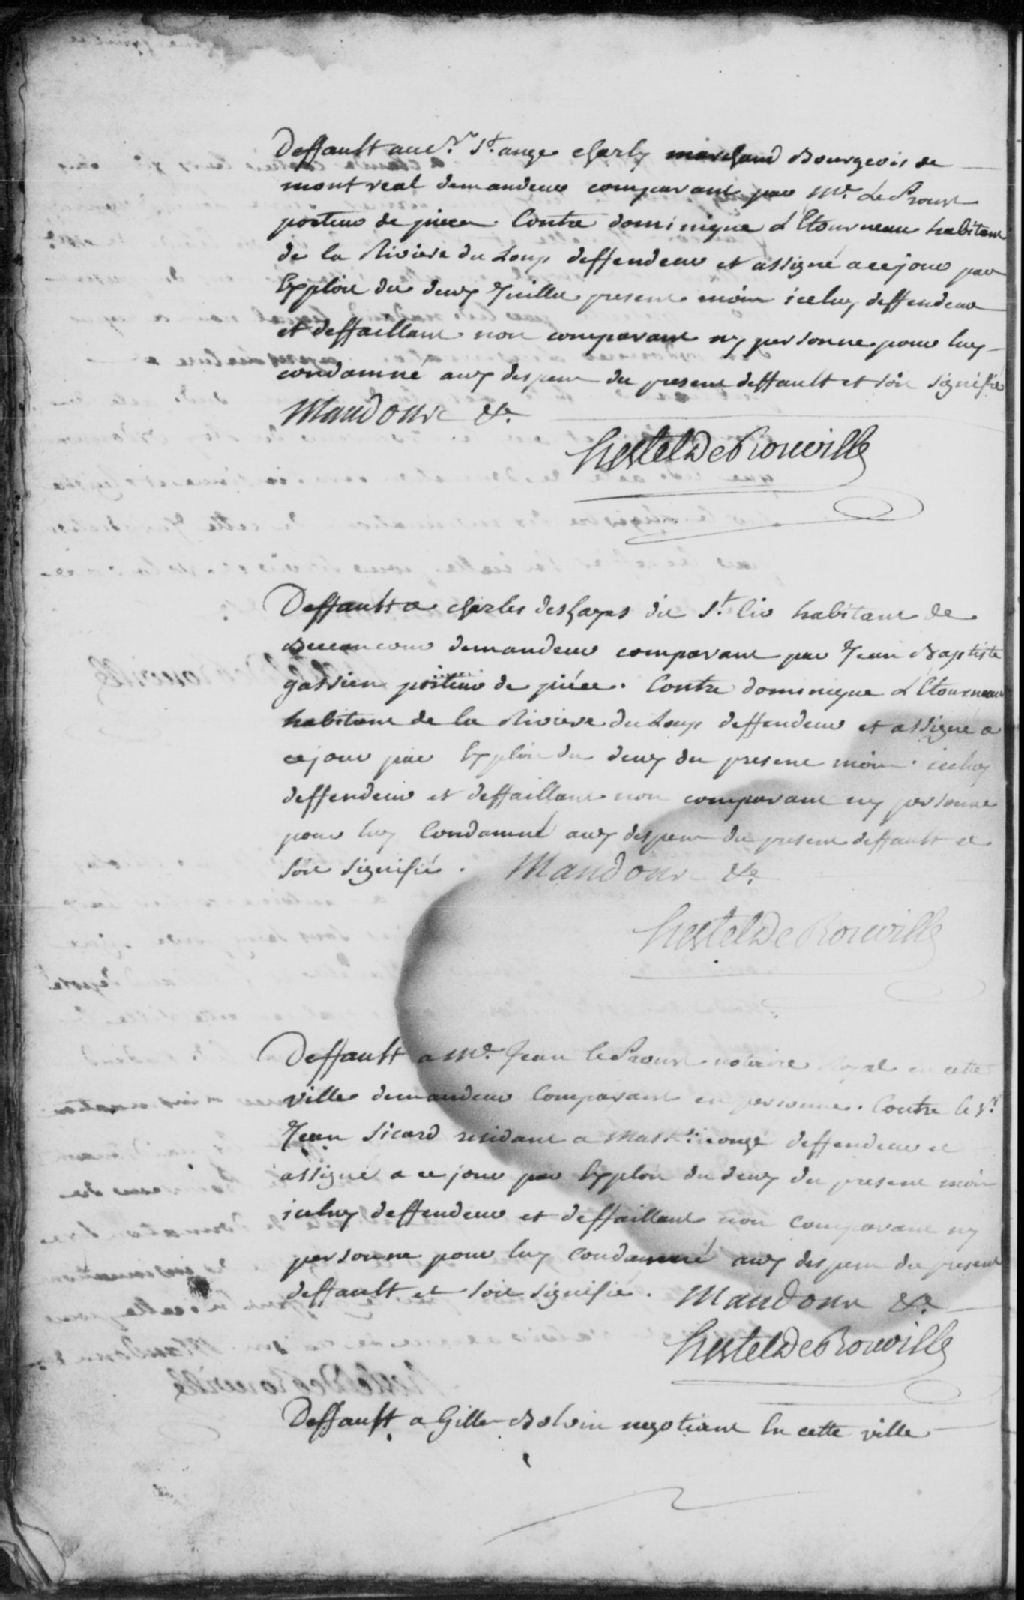 Deffault au Sr. St. ange charly marchand Bourgeois de
montreal demandeur comparant par Me. Le Proust
porteur de pieces. Contre dominique Létourneau habitant
de la Riviere du Loup deffendeur et assigné a ce jour par
Exploit du deux Juillet present mois iceluy deffendeur
et deffaillant non comparant ny personne pour luy
condamné aux despens du present deffault et soit signifié
Mandons &c.
hertel De Rouville
Deffault a charles deshayes dit St. Cir habitant de
Becancour demandeur comparant par Jean Baptiste
gastien porteur de pieces. Contre dominique Létourneau
habitant de la Riviere du Loup deffendeur et assigné a
ce jour par Exploit du deux du present mois. iceluy
deffendeur et deffaillant non comparant ny personne
pour luy Condamné aux despens du present deffault et
soit signifié. Mandons &c.
hertel De Rouville
Deffault a Me. Jean le Proust notaire Royal en cette
ville demandeur Comparant en personne. Contre le Sr.
Jean Sicard residant a deffendeur et
assigné a ce jour par Exploit du deux du present mois
iceluy deffendeur et deffaillant non comparant ny
personne pour luy condamné aux despens du present
deffault et soit signifié. Mandons &c.
hertel De Rouville
Deffault a Gilles Bolvin negotiant En cette ville